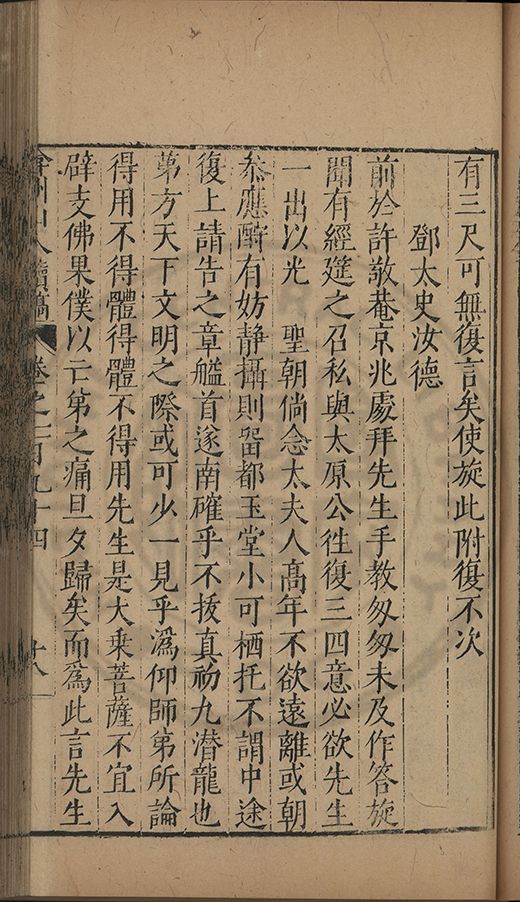 有三尺可無復言矣使旋此附復不次
鄧太史汝德
前於許敬菴京兆處拜先生手教匆匆未及作答旋
聞有經筵之召私與太原公徃復三四意必欲先生
一出以光　聖朝倘念太夫人高年不欲遠離或朝
叅應酧有妨靜攝則畱都玉堂小可栖托不謂中途
復上請告之章艗首遂南確乎不拔真初九潜龍也
第方天下文明之際或可少一見乎爲仰師第所論
得用不得體得體不得用先生是大乗菩薩不宜入
辟支佛果僕以亡第之痛旦夕歸矣而爲此言先生
弇州山人續稿　卷之一百九十四　十八